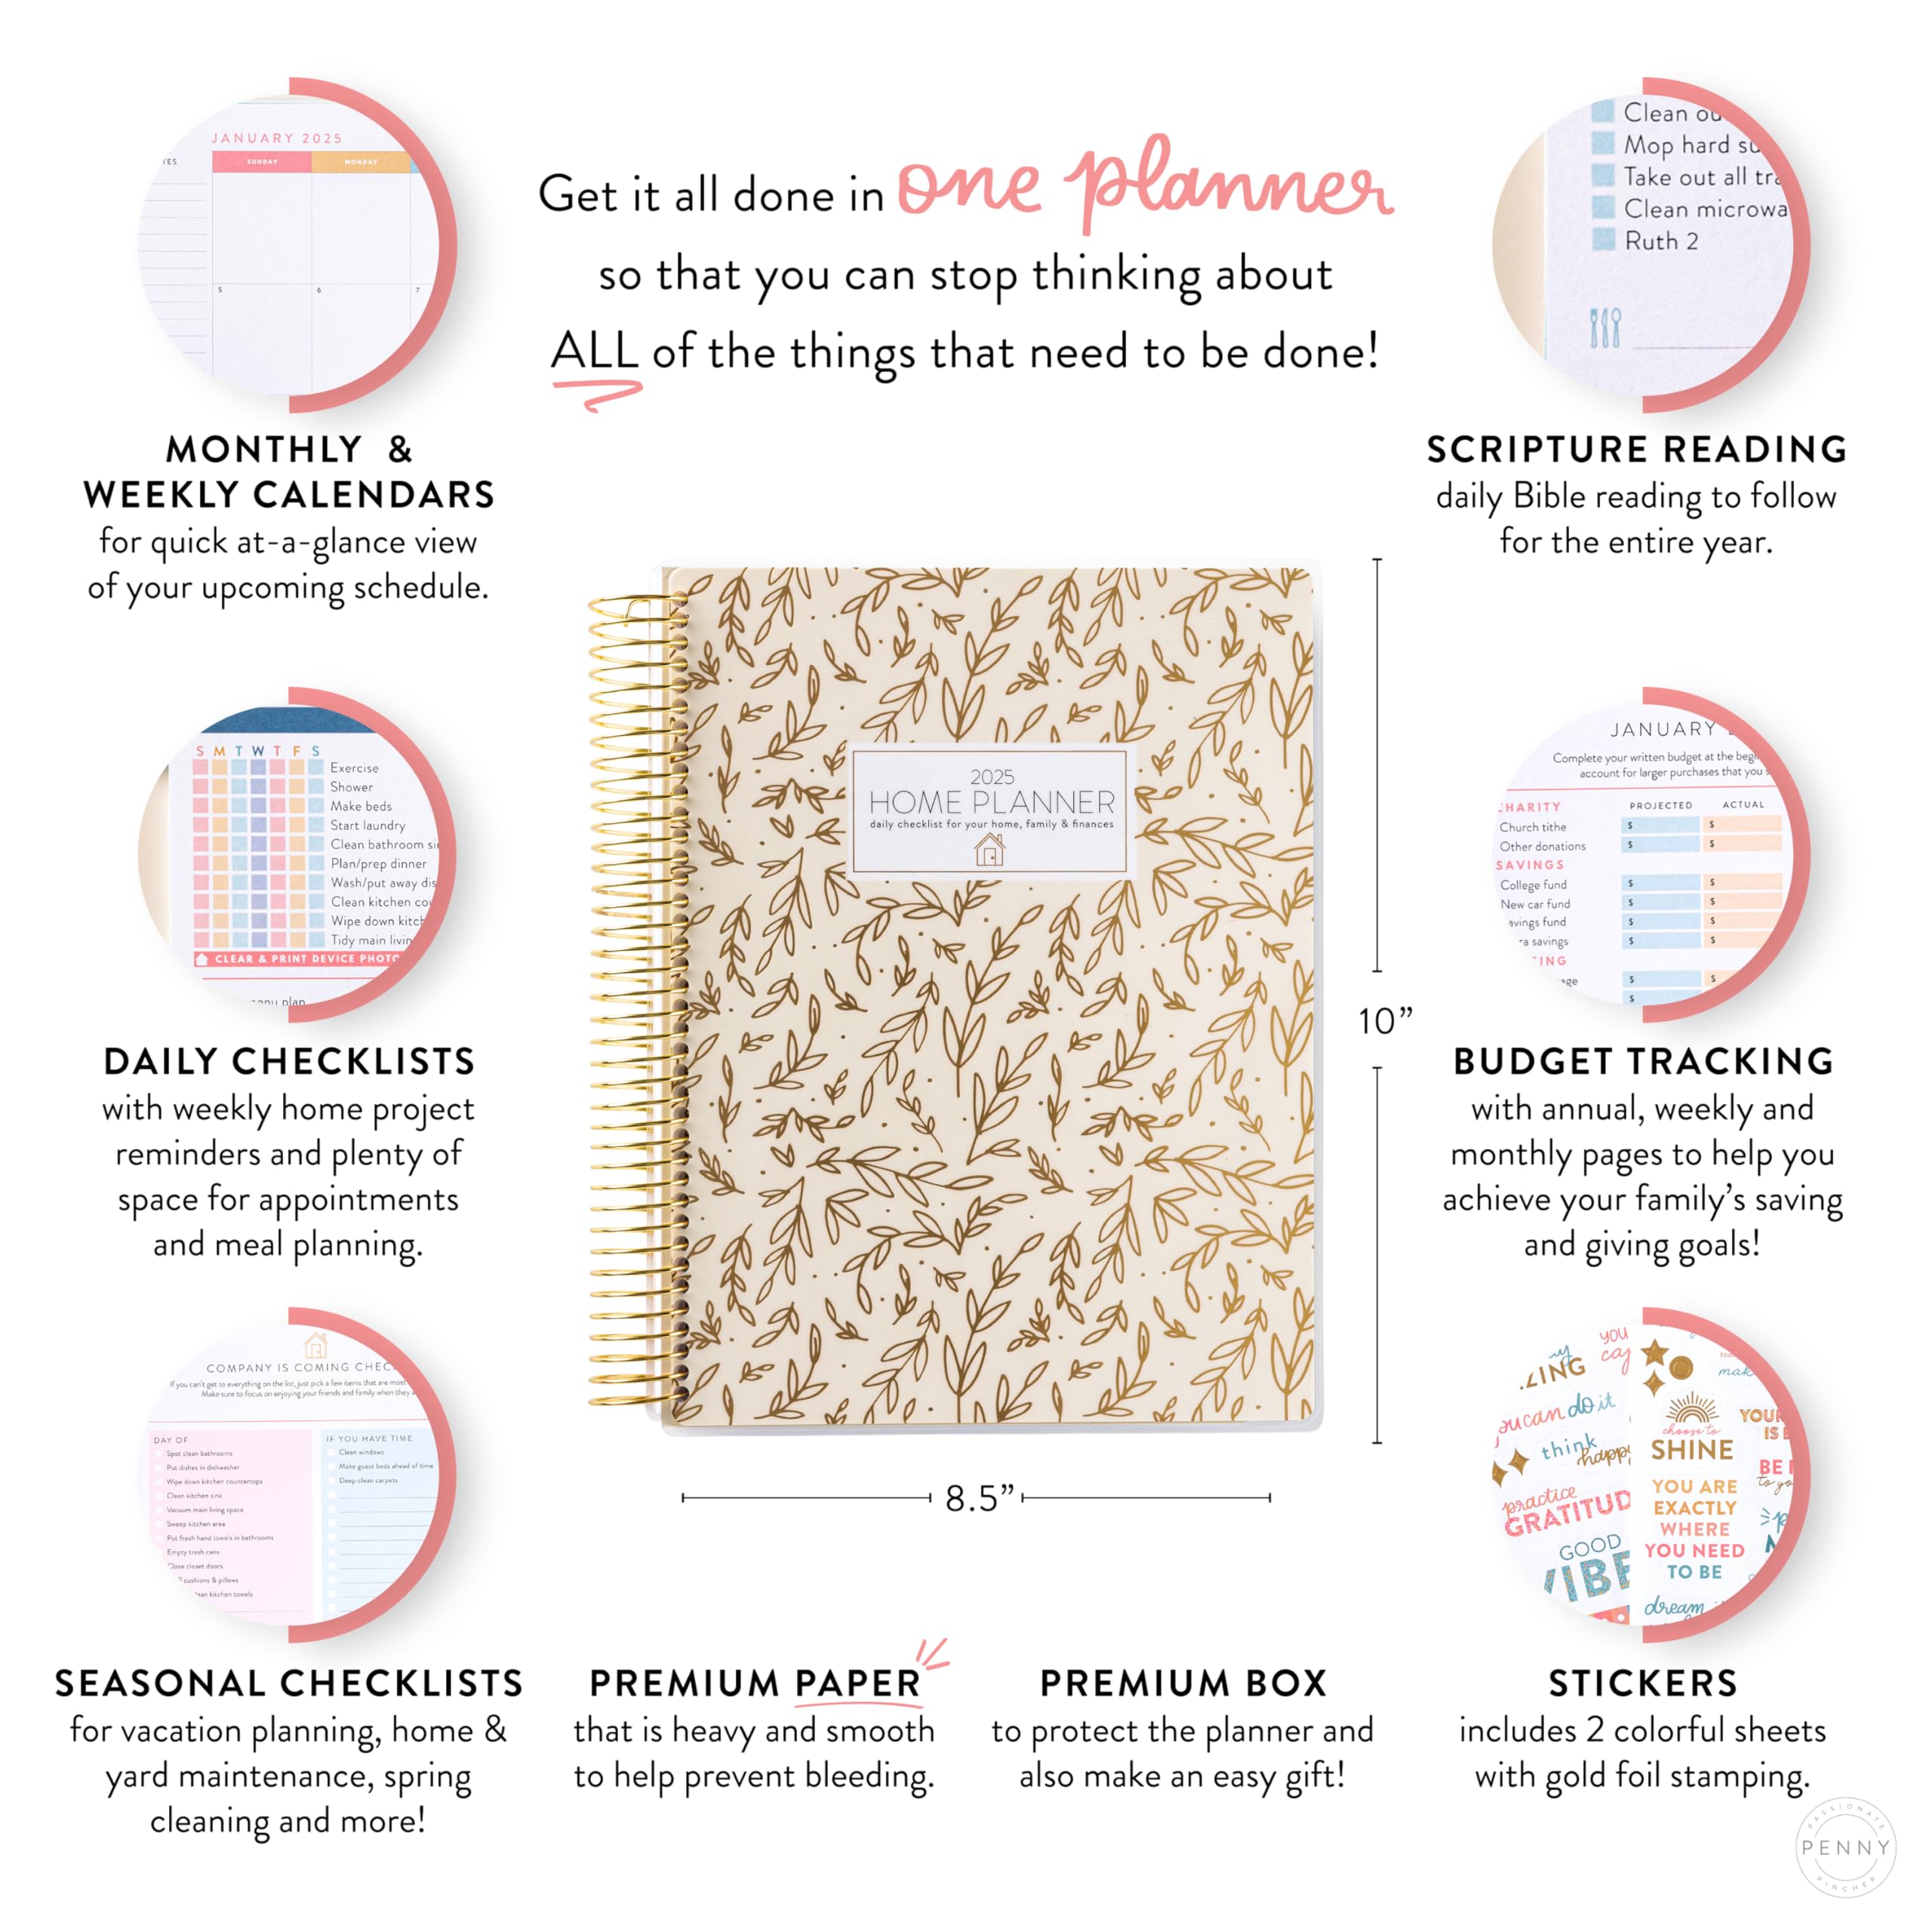 Get it all done in one planner
so that you can stop thinking about
ALL of the things that need to be done!
JANUARY 2025
SUNDAY MONDAY
5 6 7
MONTHLY &
WEEKLY CALENDARS
for quick at-a-glance view
of your upcoming schedule.
Clean
Mop hard
Take out all
Clean
Ruth 2
SCRIPTURE READING
daily Bible reading to follow
for the entire year.
S M T W T F S
Exercise
Shower
Make beds
Start laundry
Clean bathroom
Plan/prep dinner
Wash/put away
Clean kitchen
Wipe down
Tidy main
CLEAR & PRINT DEVICE
plan
DAILY CHECKLISTS
with weekly home project
reminders and plenty of
space for appointments
and meal planning.
2025
HOME PLANNER
daily checklist for your home, family & finances
10”
8.5”
JANUARY
Complete your written budget at the
account for larger purchases that you
PROJECTED ACTUAL
Church tithe $ $
Other donations $ $
SAVINGS
College fund $ $
New car fund $ $
fund $ $
savings $ $
$ $
$
BUDGET TRACKING
with annual, weekly and
monthly pages to help you
achieve your family’s saving
and giving goals!
COMPANY IS COMING
If you can't get to everything on the list, just pick a few items that are most
Make sure to focus on enjoying your friends and family when they
DAY OF
Spot clean bathrooms
Put dishes in dishwasher
Wipe down kitchen countertops
Clean kitchen sink
Vacuum main living space
Sweep kitchen area
Put fresh hand towels in bathrooms
Empty trash cans
Close closet doors
cushions & pillows
kitchen towels
IF YOU HAVE TIME
Clean windows
Make guest beds ahead of time
Deep clean carpets
SEASONAL CHECKLISTS
for vacation planning, home &
yard maintenance, spring
cleaning and more!
PREMIUM PAPER
that is heavy and smooth
to help prevent bleeding.
PREMIUM BOX
to protect the planner and
also make an easy gift!
you
can do it
think
practice
GOOD
choose to
SHINE
YOU ARE
EXACTLY
WHERE
YOU NEED
TO BE
dream
BE
STICKERS
includes 2 colorful sheets
with gold foil stamping.
PASSIONATE
PENNY
PINCHER